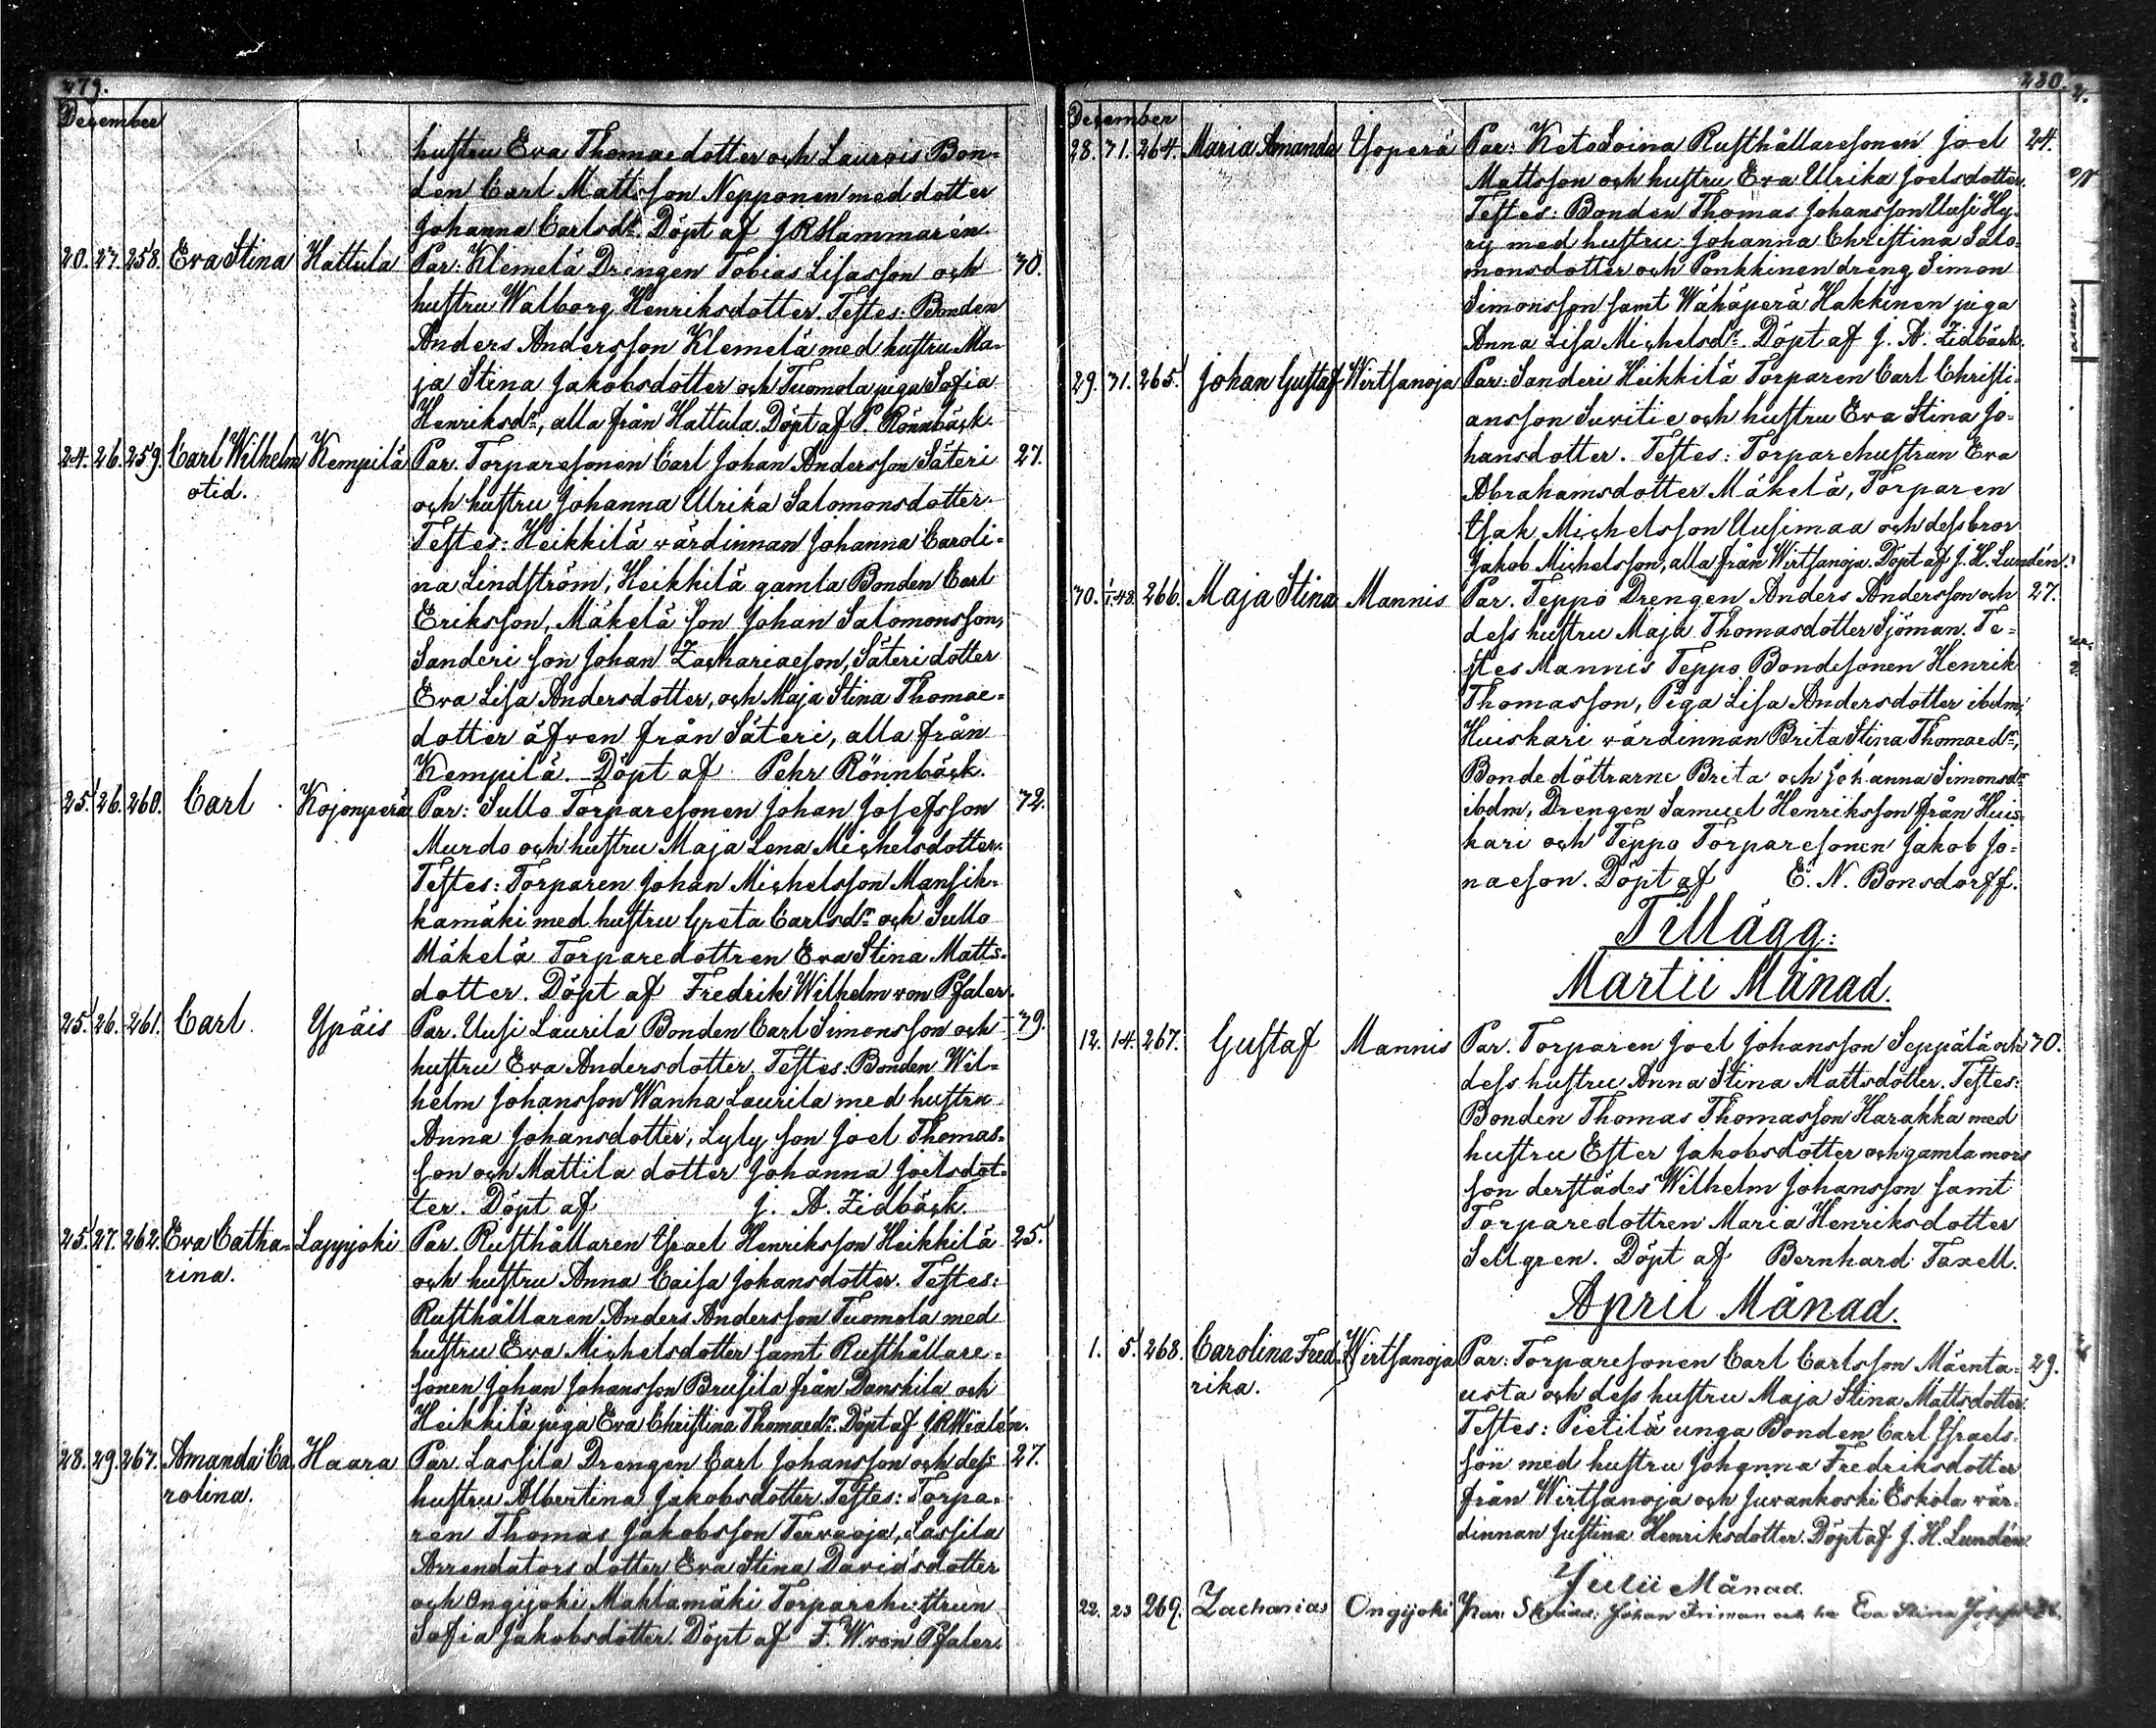 279.
December
hustru Eva Thomaedotter och Laurois Bon-
den Carl Mattsson Nepponen med dotter
Johanna Carlsdr. Döpt af J R Hammarén
20. 27. 258. Eva Stina Hattula Par: Klemelä Drengen Tobias Lisasson och 30.
hustru Walborg Henriksdotter. Testes: Bonden
Anders Andersson Klemelä med hustru Ma-
ja Stina Jakobsdotter och Tuomola piga Sofia
Henriksdr, alla från Hattula. Döpt af P. Rönnbäck.
24. 26. 259. Carl Wilhelm Kempilä Par. Torparesonen Carl Johan Andersson Säteri 27.
otid. och hustru Johanna Ulrika Salomonsdotter.
Testes: Heikkilä wärdinnan Johanna Caroli-
na Lindström, Heikkilä gamla Bonden Carl
Eriksson, Mäkelä son Johan Salomonsson,
Sanderi son Johan Zachariaeson, Säteri dotter
Eva Lisa Andersdotter, och Maja Stina Thomae-
dotter äfven från Säteri, alla från
Kempilä. Döpt af Pehr Rönnbäck.
25. 26. 260. Carl Kojonperä Par: Sullo Torparesonen Johan Josefsson 32.
Murdo och hustru Maja Lena Michelsdotter.
Testes: Torparen Johan Michelsson Mansik-
kamäki med hustru Greta Carlsdr och Sullo
Mäkelä Torparedottren Eva Stina Matts-
dotter. Döpt af Fredrik Wilhelm von Pfaler.
25. 26. 261. Carl. Ypäis Par. Uusi Laurila Bonden Carl Simonsson och 39.
hustru Eva Andersdotter. Testes: Bonden Wil-
helm Johansson Wanha Laurila med hustru
Anna Johansdotter, Lyly son Joel Thomas-
son och Mattila dotter Johanna Joelsdot-
ter. Döpt af J. A. Zidbäck.
25. 27. 262. Eva Catha- Lappjoki Par. Rusthållaren Israel Henriksson Heikkilä 25.
rina. och hustru Anna Caisa Johansdotter. Testes:
Rusthållaren Anders Andersson Tuomola med
hustru Eva Michelsdotter samt Rusthållare-
sonen Johan Johansson Brusila från Danskila och
Heikkilä piga Eva Christina Thomaedr. Döpt af J R Wialén.
28. 29. 263. Amanda Ca Haara Par. Lassila Drengen Carl Johansson och dess 27.
rolina. hustru Albertina Jakobsdotter. Testes: Torpa-
ren Thomas Jakobsson Tervaoja, Lassila
Arrendators dotter Eva Stina Davidsdotter
och Ongijoki Mahlamäki Torparehustrun
Sofia Jakobsdotter. Döpt af F. W. von Pfaler.
280.
December
28. 31. 264. Maria Amanda Ysoperä Par: KetoSoina Rusthållaresonen Joel 24.
Mattsson och hustru Eva Ulrika Joelsdotter.
Testes: Bonden Thomas Johansson Uusi Hy-
ry med hustru Johanna Christina Salo-
monsdotter och Ponkkinen dreng Simon
Simonsson samt Wähäperä Hakkinen piga
Anna Lisa Michelsdr. Döpt af J. A. Zidbäck.
29. 31. 265. Johan Gustaf Wirtsanoja Par: Sanderi Heikkilä Torparen Carl Christi-
ansson Suvitie och hustru Eva Stina Jo-
hansdotter. Testes: Torparehustrun Eva
Abrahamsdotter Mäkelä, Torparen
Isak Michelsson Uusimaa och dess bror
Jakob Michelsson, alla från Wirtsanoja. Döpt af J. H. Lundén.
30. 1/1.48. 266. Maja Stina Mannis Par. Teppo Drengen Anders Andersson och 27.
dess hustru Maja Thomasdotter Sjöman. Te-
stes Mannis Teppo Bondesonen Henrik
Thomasson, Piga Lisa Andersdotter ibdm,
Huiskari wärdinnan Brita Stina Thomaedr,
Bondedöttrarne Brita och Johanna Simonsdr
ibdm, Drengen Samuel Henriksson från Huis-
kari och Teppo Torparesonen Jakob Jo-
naeson. Döpt af E. N. Bonsdorff.
Tillägg:
Martii Månad.
12. 14. 267. Gustaf Mannis Par. Torparen Joel Johansson Seppälä och 30.
dess hustru Anna Stina Mattsdotter. Testes:
Bonden Thomas Thomasson Harakka med
hustru Ester Jakobsdotter och gamla mors
son derstädes Wilhelm Johansson samt
Torparedottren Maria Henriksdotter
Sellgren. Döpt af Bernhard Taxell.
April Månad.
1. 5. 268. Carolina Fred- Wirtsanoja Par: Torparesonen Carl Carlsson Mäenta- 29.
rika. usta och dess hustru Maja Stina Mattsdotter.
Testes: Pietilä unga Bonden Carl Israels-
son med hustru Johanna Fredriksdotter
från Wirtsanoja och Juvankoski Eskola wär-
dinnan Justina Henriksdotter. Döpt af J. H. Lundén.
Julii Månad.
22. 23 269. Zacharias Ongijoki Par: Johan Friman och Eva Stina